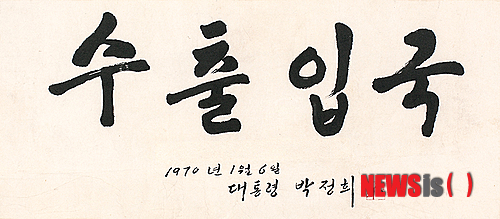 수출입국
1970년 1월 6일
대통령 박정희
NEWSis( )